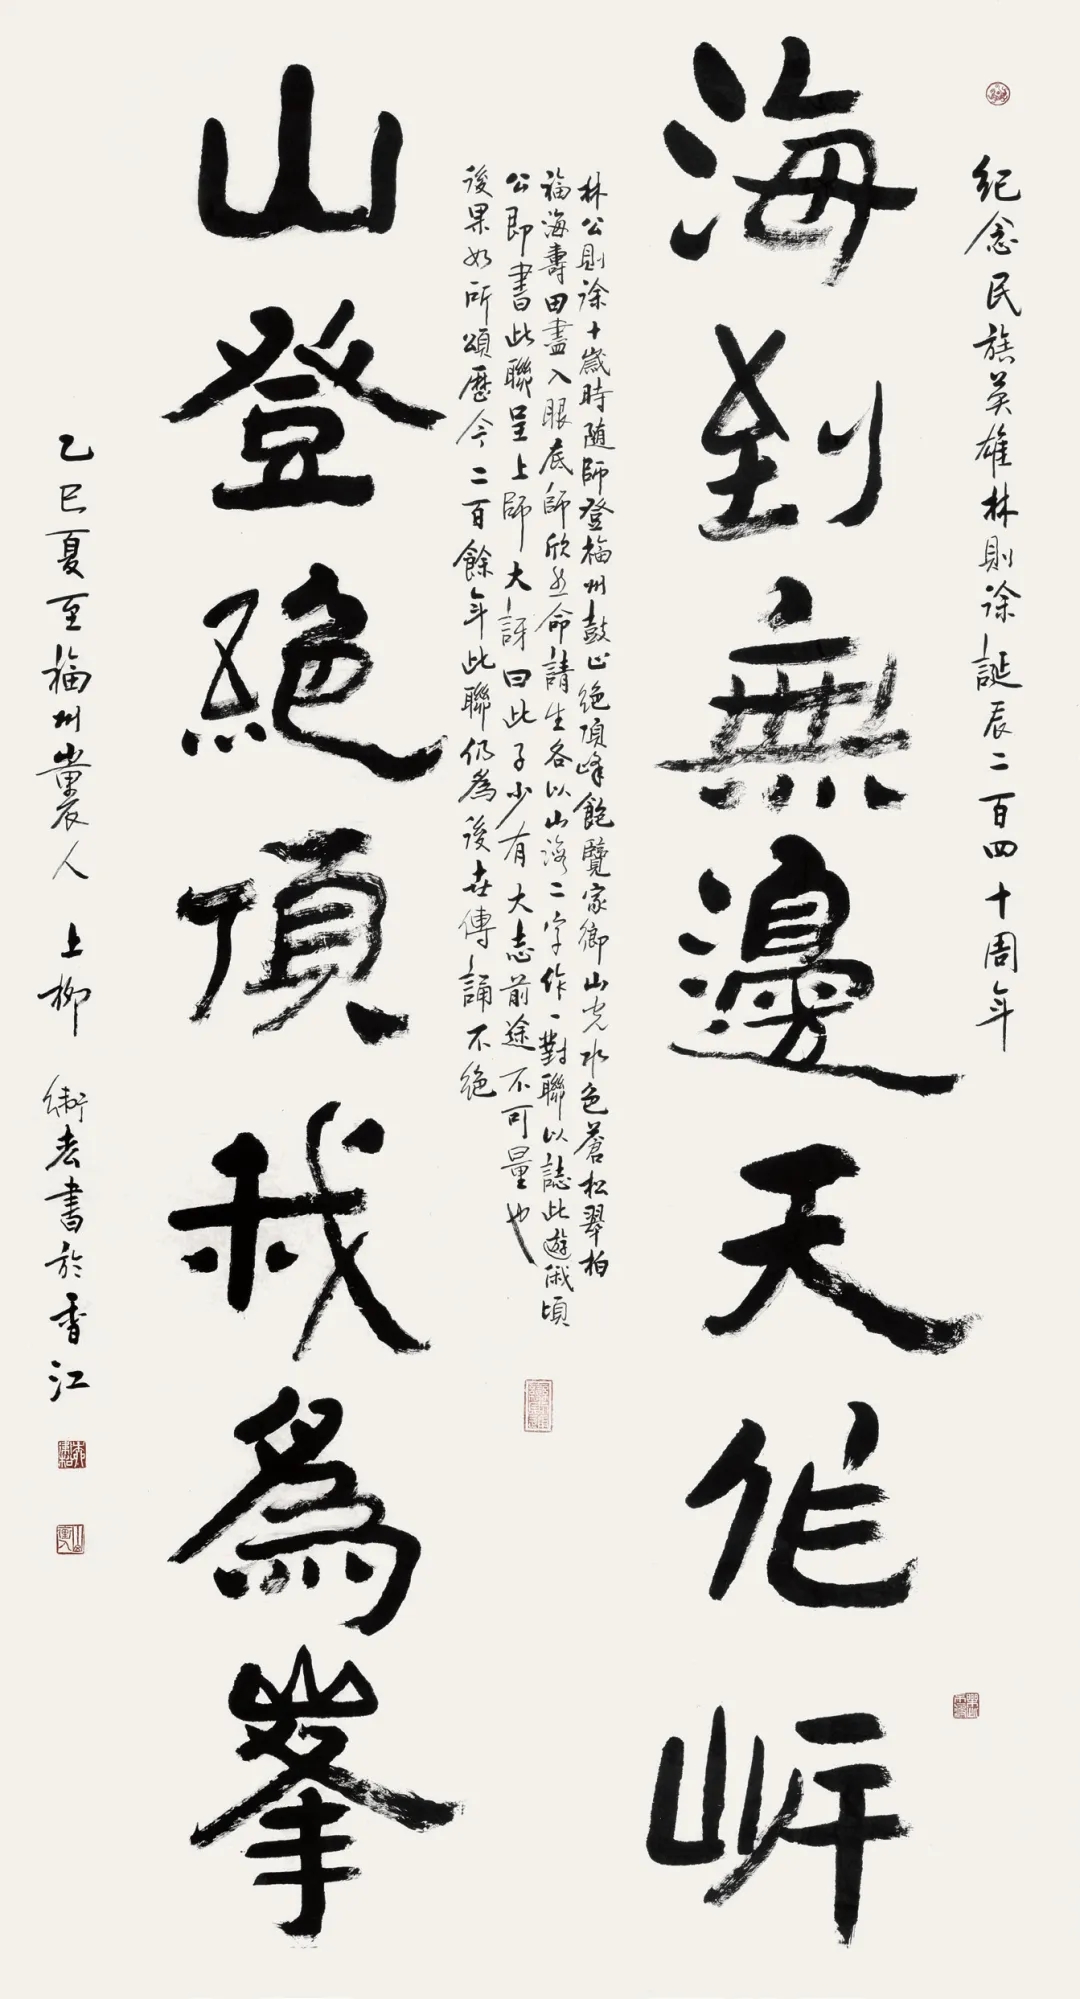 紀念民族英雄林則徐誕辰二百四十周年
海到無邊天作岸
林公則徐十歲時隨師登福州鼓山絕頂峰飽覽家鄉山光水色蒼松翠柏
福海壽田盡入眼底師欣然命請生各以山海二字作一對聯以誌此遊俄頃
公即書此聯呈上師大訝曰此子少有大志前途不可量也
後果如所頌歷今二百餘年此聯仍為後世傳誦不絕
山登絕頂我為峯
乙巳夏至福州農人上柳衛書於香江